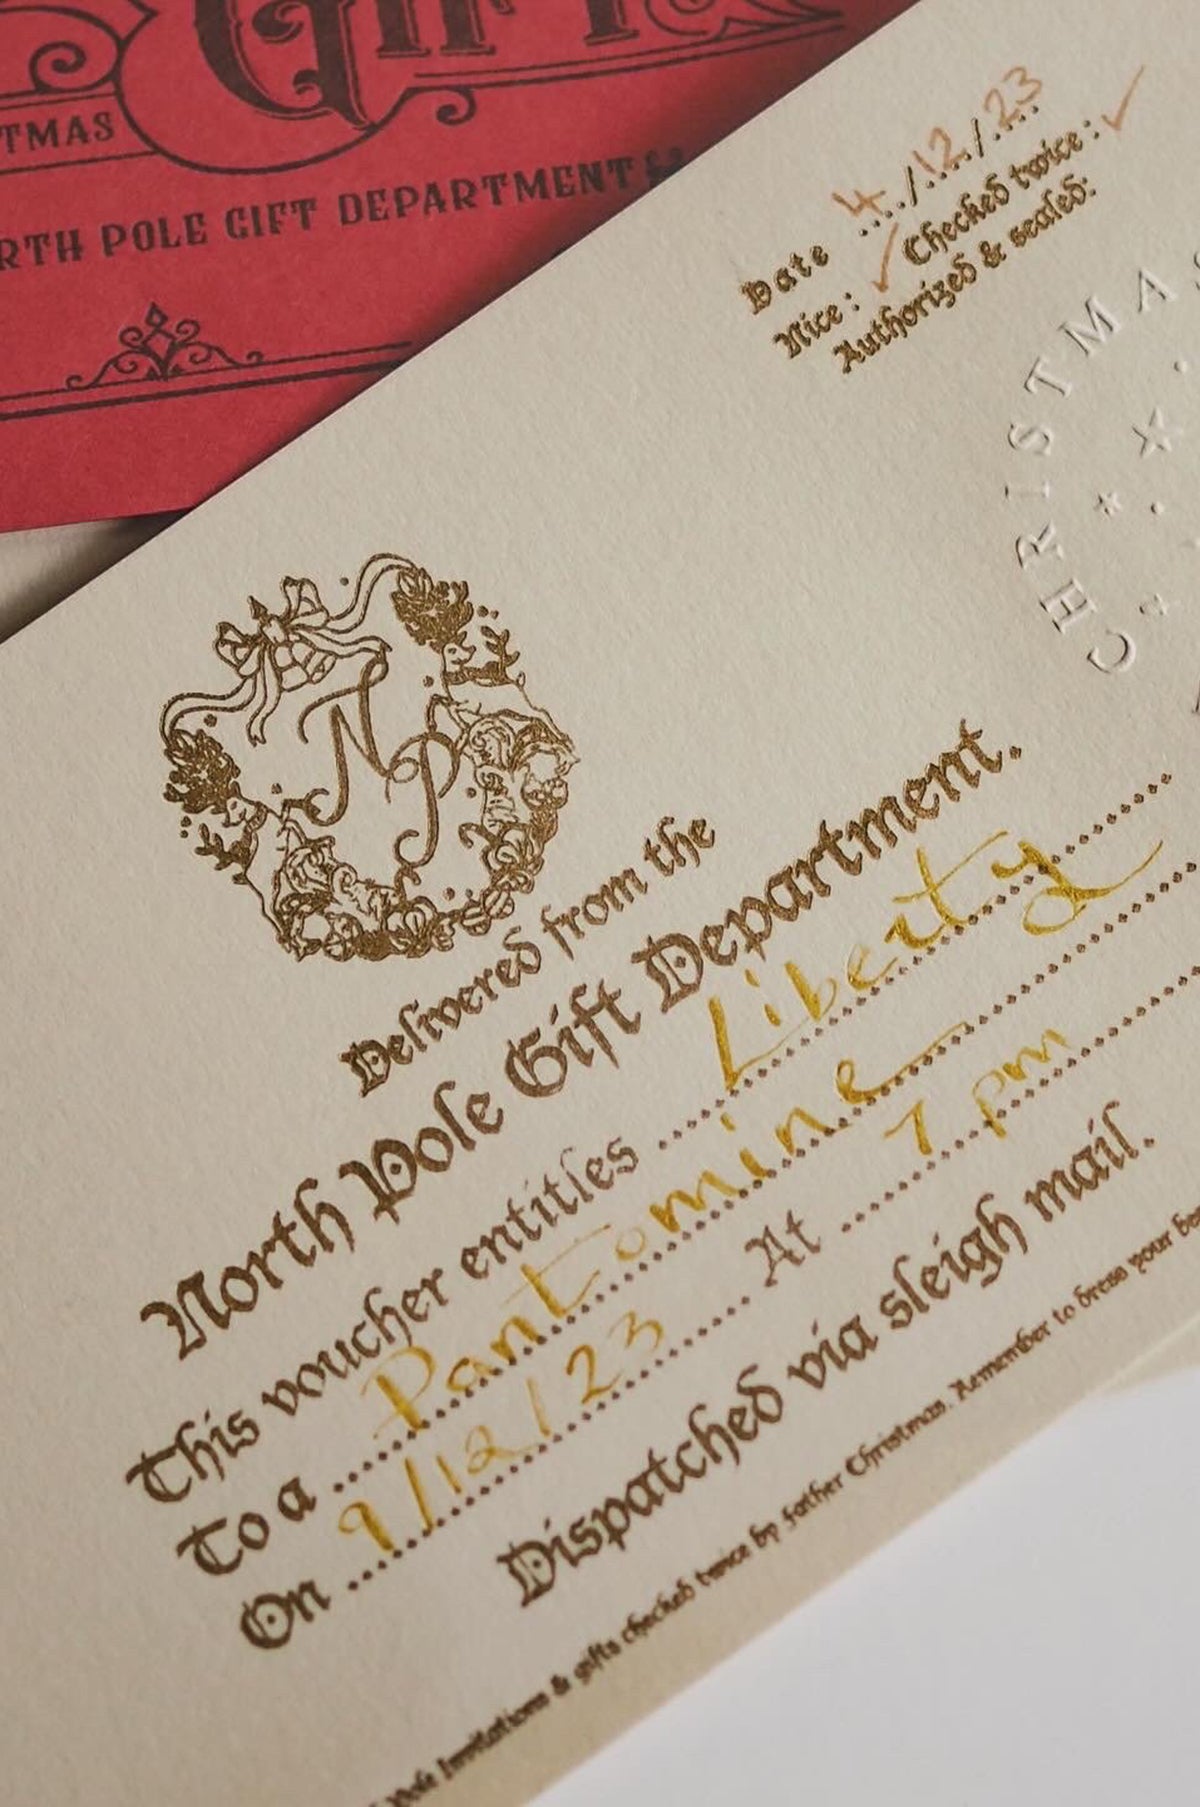 GIFT
TMAS
RTH POLE GIFT DEPARTMENT
Date 4/12/23
Nice: ✓ Checked twice: ✓
Authorized & sealed:
CHRISTMA
NP
Delivered from the
North Pole Gift Department.
This voucher entitles Liberty
To a Pantomine
On 9/12/23 At 7 pm
Dispatched via sleigh mail.
Pole Invitations & gifts checked twice by Father Christmas. Remember to dress your